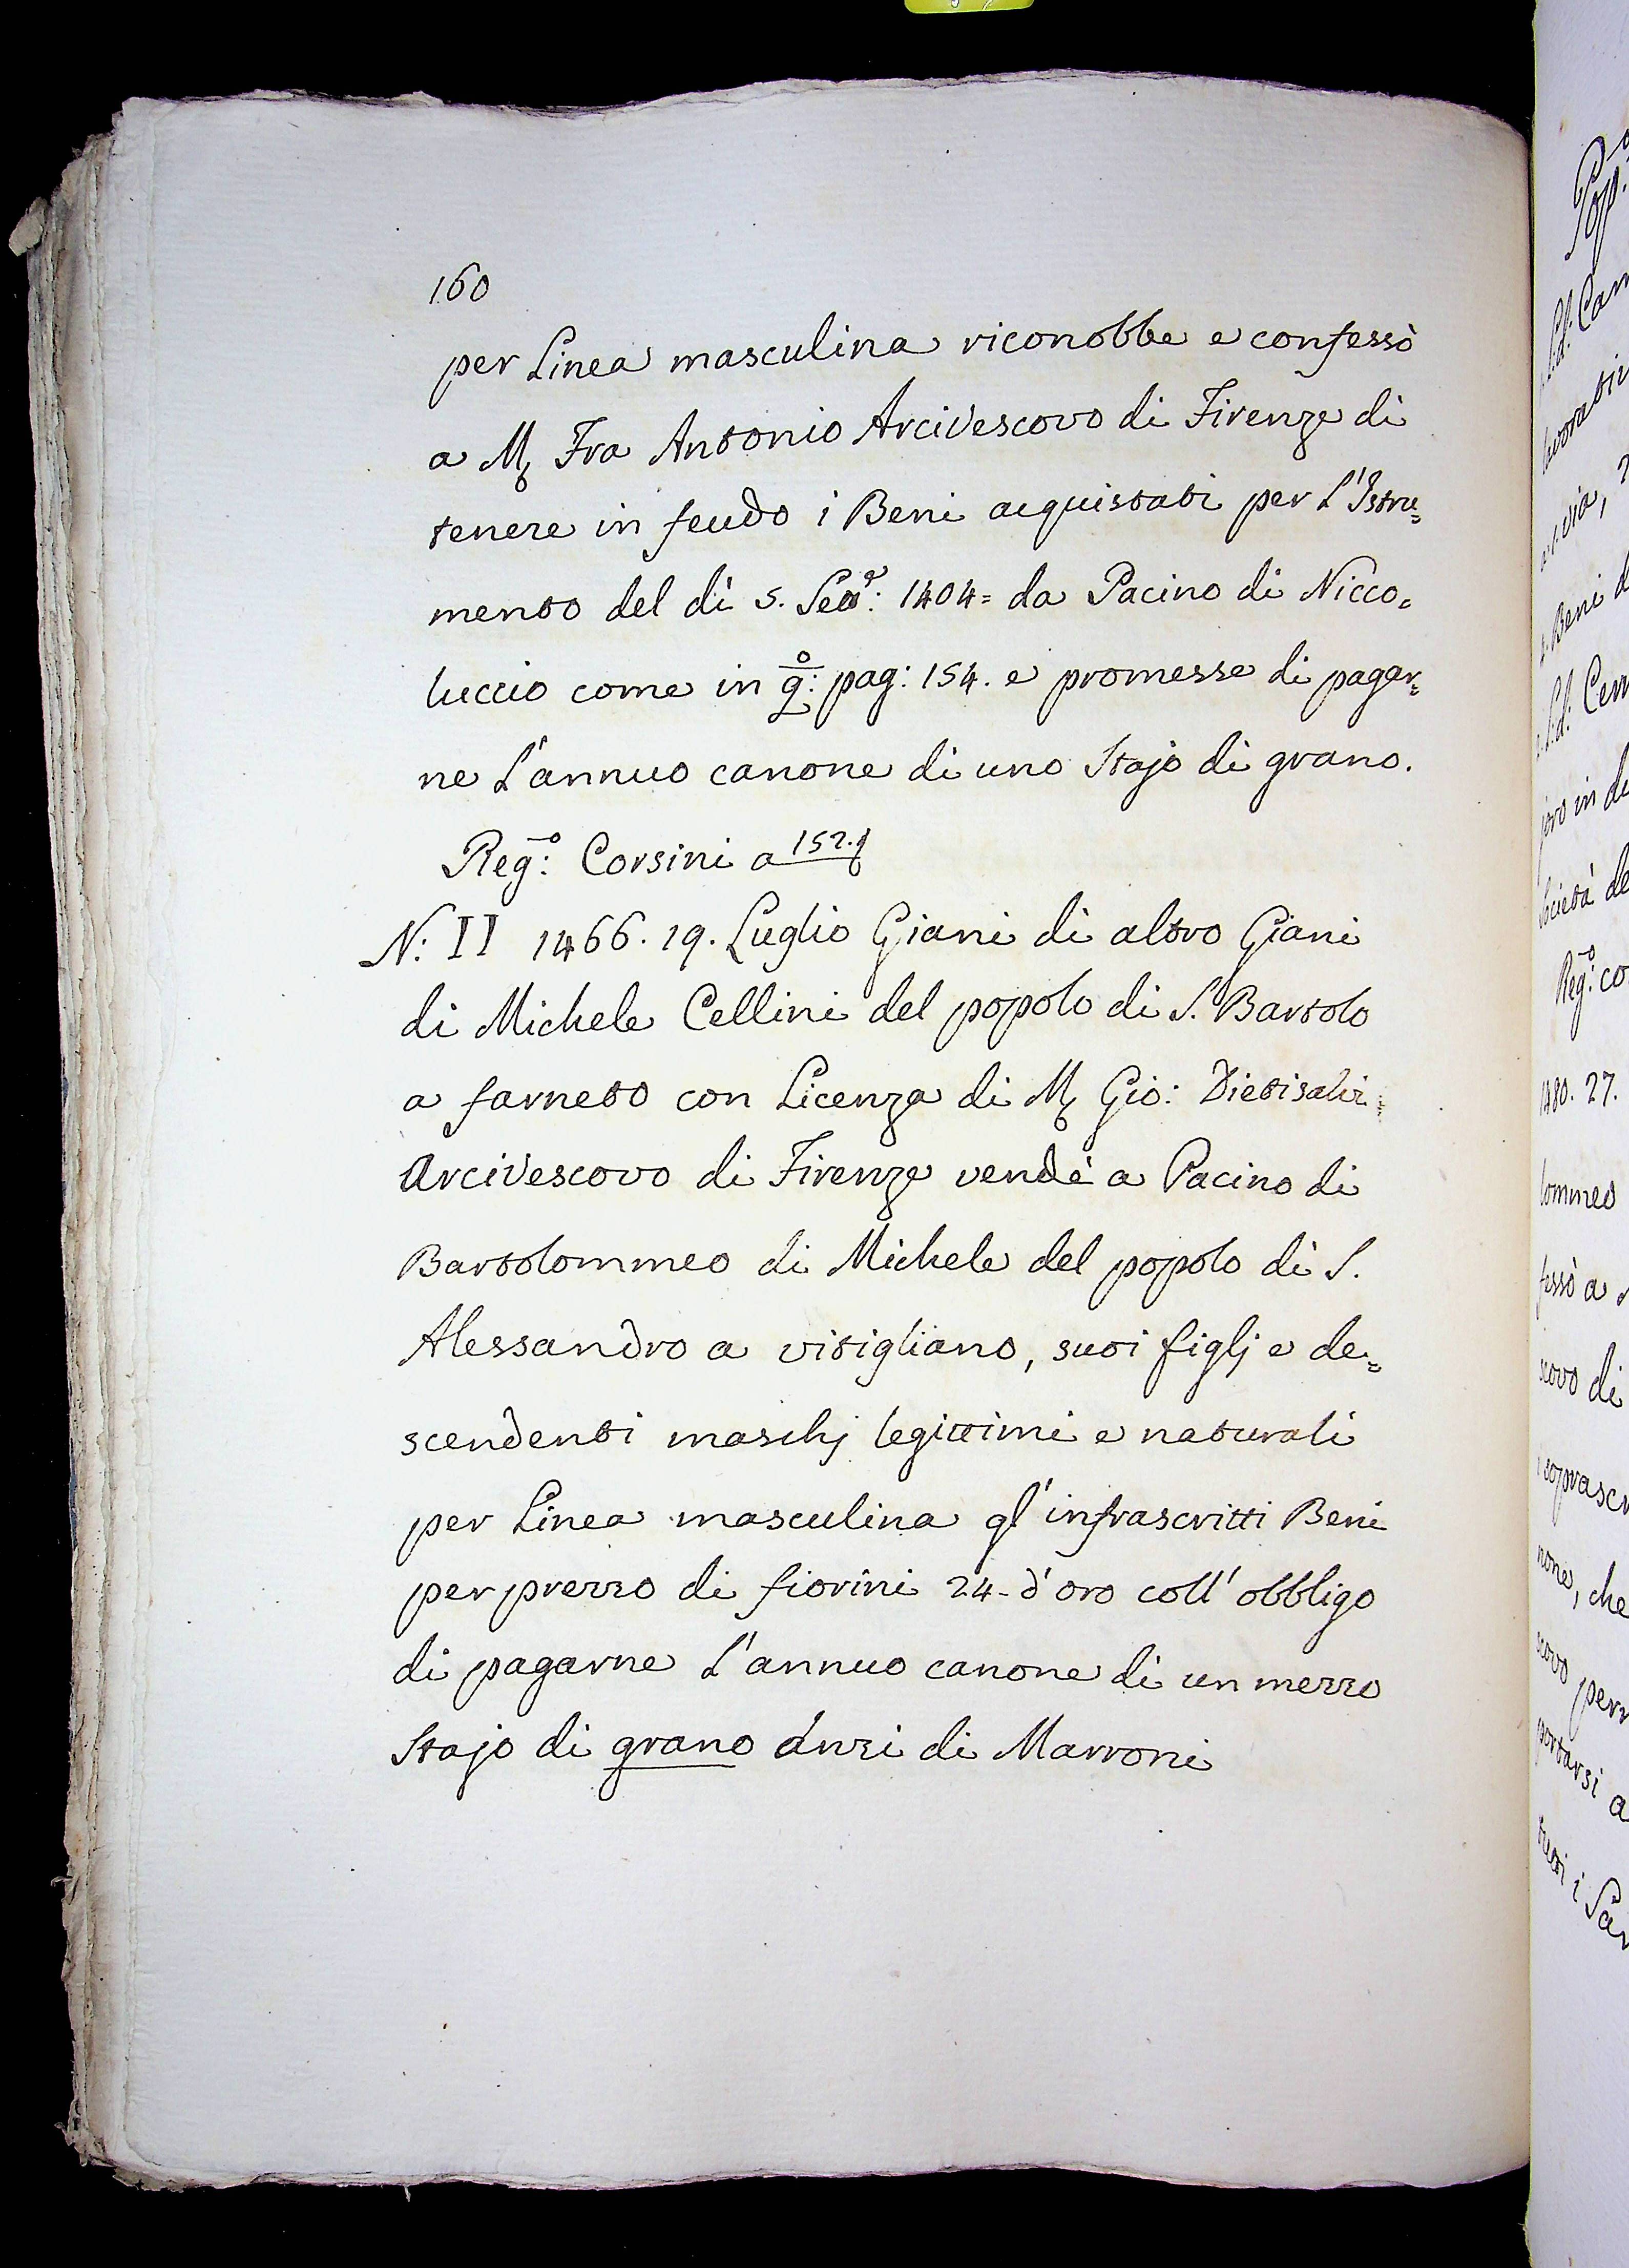 160
per Linea masculina riconobbe e confessò
a M. Fra Antonio Arcivescovo di Firenze di
tenere in feudo i Beni acquistati per l'Istru=
mento del dì 5. 1404= da Pacino di Nicco=
luccio come in q:o pag: 154. e promesse di pagar=
ne l'annuo canone di uno Stajo di grano.
Reg:o Corsini a 152.
N: II 1466. 19. Luglio Giani di altro Giani
di Michele Cellini del popolo di S. Bartolo
a farneto con Licenza di M. Gio: Dietisalvi
Arcivescovo di Firenze vendè a Pacino di
Bartolommeo di Michele del popolo di S.
Alessandro a vitigliano, suoi figlj e de=
scendenti maschj legittimi e naturali
per Linea masculina gl'infrascritti Beni
per prezzo di fiorini 24- d'oro coll'obbligo
di pagarne l'annuo canone di un mezzo
Stajo di grano anzi di Marroni
Reg:o co
1480. 27.
lommeo
fessò a
scovo di
soprascr
none, che
scovo per
portarsi a
tutti i